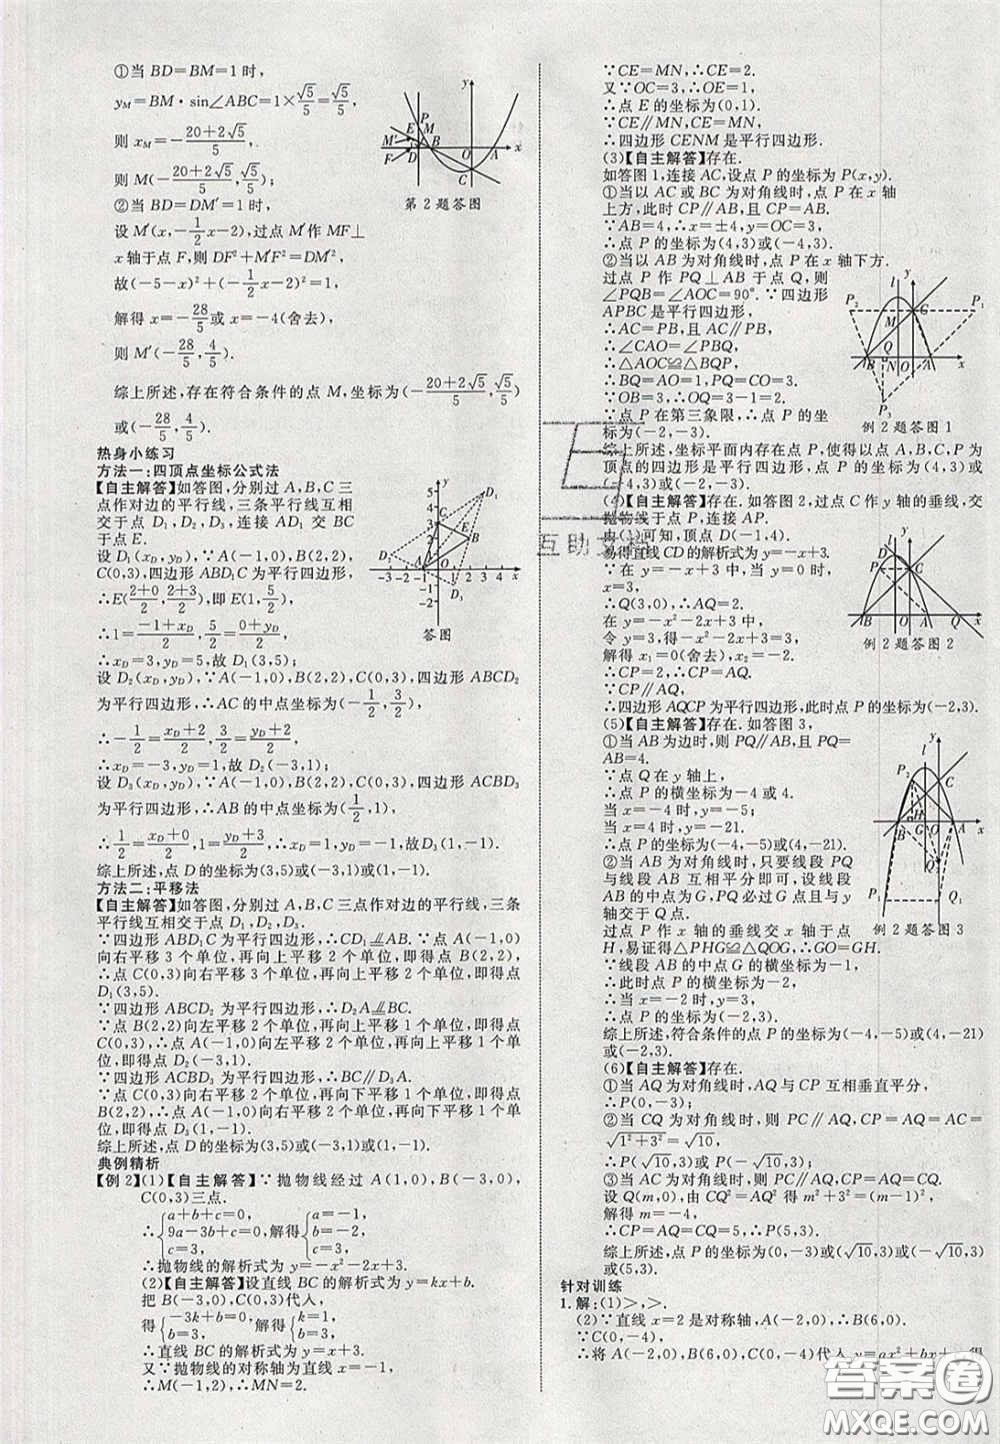 ①当 BD=BM=1时,
y_M=BM·sin∠ABC=1×√5/5=√5/5,
则 x_M=-(20+2√5)/5,
则 M(-(20+2√5)/5,√5/5);
②当 BD=DM′=1时,
设 M′(x,-1/2x-2),过点 M′作 MF⊥
x轴于点F,则 DF²+M′F²=DM′²,
故(-5-x)²+(-1/2x-2)²=1,
解得 x=-28/5或x=-4(舍去),
则 M′(-28/5,4/5).
综上所述,存在符合条件的点 M,坐标为(-(20+2√5)/5,√5/5)
或(-28/5,4/5).
第2题答图
热身小练习
方法一:四顶点坐标公式法
【自主解答】如答图,分别过 A,B,C 三
点作对边的平行线,三条平行线互相
交于点 D₁,D₂,D₃,连接 AD₁ 交 BC
于点E.
设 D₁(x_D,y_D),∵A(-1,0),B(2,2),
C(0,3),四边形 ABD₁C 为平行四边形,
∴E((2+0)/2,(2+3)/2),即 E(1,5/2),
∴1=(-1+x_D)/2,5/2=(0+y_D)/2,
∴x_D=3,y_D=5,故 D₁(3,5);
答图
设 D₂(x_D,y_D),∵A(-1,0),B(2,2),C(0,3),四边形ABCD₂
为平行四边形,∴AC的中点坐标为(-1/2,3/2),
∴-1/2=(x_D+2)/2,3/2=(y_D+2)/2,∴x_D=-3,y_D=1,故 D₂(-3,1);
设 D₃(x_D,y_D),∵A(-1,0),B(2,2),C(0,3),四边形 ACBD₃
为平行四边形,∴AB的中点坐标为(1/2,1),
∴1/2=(x_D+0)/2,1=(y_D+3)/2,∴x_D=1,y_D=-1,故D₃(1,-1).
综上所述,点 D的坐标为(3,5)或(-3,1)或(1,-1).
方法二:平移法
【自主解答】如答图,分别过 A,B,C 三点作对边的平行线,三条
平行线互相交于点 D₁,D₂,D₃.
∵四边形 ABD₁C 为平行四边形,∴CD₁⫽AB.∵点 A(-1,0)
向右平移3个单位,再向上平移2个单位,即得点 B(2,2),
∴点 C(0,3)向右平移3个单位,再向上平移2个单位,即得点
D₁(3,5).
∵四边形 ABCD₂ 为平行四边形,∴D₂A⫽BC.
∵点 B(2,2)向左平移 2 个单位,再向上平移 1 个单位,即得点
C(0,3),∴点 A(-1,0)向左平移 2 个单位,再向上平移 1 个单
位,即得点 D₂(-3,1).
∵四边形 ACBD₃ 为平行四边形,∴BC∥D₃A.
∵点 C(0,3)向右平移 2 个单位,再向下平移 1 个单位,即得点
B(2,2),∴点 A(-1,0)向右平移 2 个单位,再向下平移 1 个单
位,即得点 D₃(1,-1).
综上所述,点 D的坐标为(3,5)或(-3,1)或(1,-1).
典例精析
【例2】(1)【自主解答】∵抛物线经过 A(1,0),B(-3,0),
C(0,3)三点.
∴{a+b+c=0, 9a-3b+c=0, c=3, 解得{a=-1, b=-2, c=3,
∴抛物线的解析式为 y=-x²-2x+3.
(2)【自主解答】设直线 BC 的解析式为 y=kx+b.
把 B(-3,0),C(0,3)代入,
得{-3k+b=0, b=3, 解得{k=1, b=3,
∴直线 BC 的解析式为 y=x+3,
又∵抛物线的对称轴为直线 x=-1,
∴M(-1,2),∴MN=2.
∵CE=MN,∴CE=2.
又∵OC=3,∴OE=1,
∴点 E 的坐标为(0,1).
∵CE∥MN,CE=MN,
∴四边形 CENM 是平行四边形.
(3)【自主解答】存在.
如答图1,连接 AC,设点 P 的坐标为 P(x,y).
①当以 AC 或 BC 为对角线时,点 P 在 x 轴
上方,此时 CP∥AB,CP=AB,
∵AB=4,∴x=±4,y=OC=3,
∴点 P 的坐标为(4,3)或(-4,3).
②当以 AB 为对角线时,点 P 在 x 轴下方.
过点 P 作 PQ⊥AB 于点 Q,则
∠PQB=∠AOC=90°.∵四边形
APBC 是平行四边形,
∴AC=PB,且 AC∥PB,
∴∠CAO=∠PBQ,
∴△AOC≌△BQP,
∴BQ=AO=1,PQ=CO=3.
∵OB=3,∴OQ=3-1=2.
∵点 P 在第三象限,∴点 P 的坐
标为(-2,-3).
例2题答图1
综上所述,坐标平面内存在点 P,使得以点 A,B,C,P 为
顶点的四边形是平行四边形,点 P 的坐标为(4,3)或
(-4,3)或(-2,-3).
(4)【自主解答】存在.如答图2,过点 C 作 y 轴的垂线,交
抛物线于点 P,连接 AP.
由(1)可知,顶点 D(-1,4).
易得直线 CD 的解析式为 y=-x+3.
∵在 y=-x+3 中,当 y=0 时,
x=3,
∴Q(3,0),∴AQ=2.
在 y=-x²-2x+3 中,
令 y=3,得3=-x²-2x+3,
解得 x₁=0(舍去),x₂=-2.
∴CP=2,∴CP=AQ.
∵CP∥AQ,
例2题答图2
∴四边形 AQCP 为平行四边形,此时点 P(-2,3).
(5)【自主解答】存在.如答图3,
①当 AB 为边时,则 PQ∥AB,且 PQ=
AB=4.
∵点 Q 在 y 轴上,
∴点 P 的横坐标为-4或4.
当 x=-4 时,y=-5;
当 x=4 时,y=-21.
∴点 P 的坐标为(-4,-5)或(4,-21).
②当 AB 为对角线时,只要线段 PQ
与线段 AB 互相平分即可,设线段
AB 的中点为 G,PQ 必过点 G 且与 y
轴交于 Q 点.
过点 P 作 x 轴的垂线交 x 轴于点
H,易证得△PHG≌△QOG,∴GO=GH.
例2题答图3
∵线段 AB 的中点 G 的横坐标为-1,
∴此时点 P 的横坐标为-2,
∴当 x=-2 时,y=3,
∴点 P 的坐标为(-2,3).
综上所述,符合条件的点 P 的坐标为(-4,-5)或(4,-21)
或(-2,3).
(6)【自主解答】存在.
①当 AQ 为对角线时,AQ 与 CP 互相垂直平分,
∴P(0,-3);
②当 CQ 为对角线时,则 PC∥AQ,CP=AQ=AC=
√(1²+3²)=√10,
∴P(√10,3)或(-√10,3);
③当 AC 为对角线时,则 CP∥AQ,CP=CQ=AQ.
设 Q(m,0),由 AQ=CQ 得 m²+3²=(1-m)²,
解得 m=-4,
∴CP=AQ=CQ=5,∴P(5,3).
综上所述,点 P 的坐标为(0,-3)或(√10,3)或(-√10,3)
或(5,3).
针对训练
1.解:(1)>,>.
(2)∵直线 x=2 是对称轴,A(-2,0),∴B(6,0).
∵C(0,-4),
∴将 A(-2,0),B(6,0),C(0,-4)代入 y=ax²+bx+c 得
互助文档
答案圈
MXQE.COM